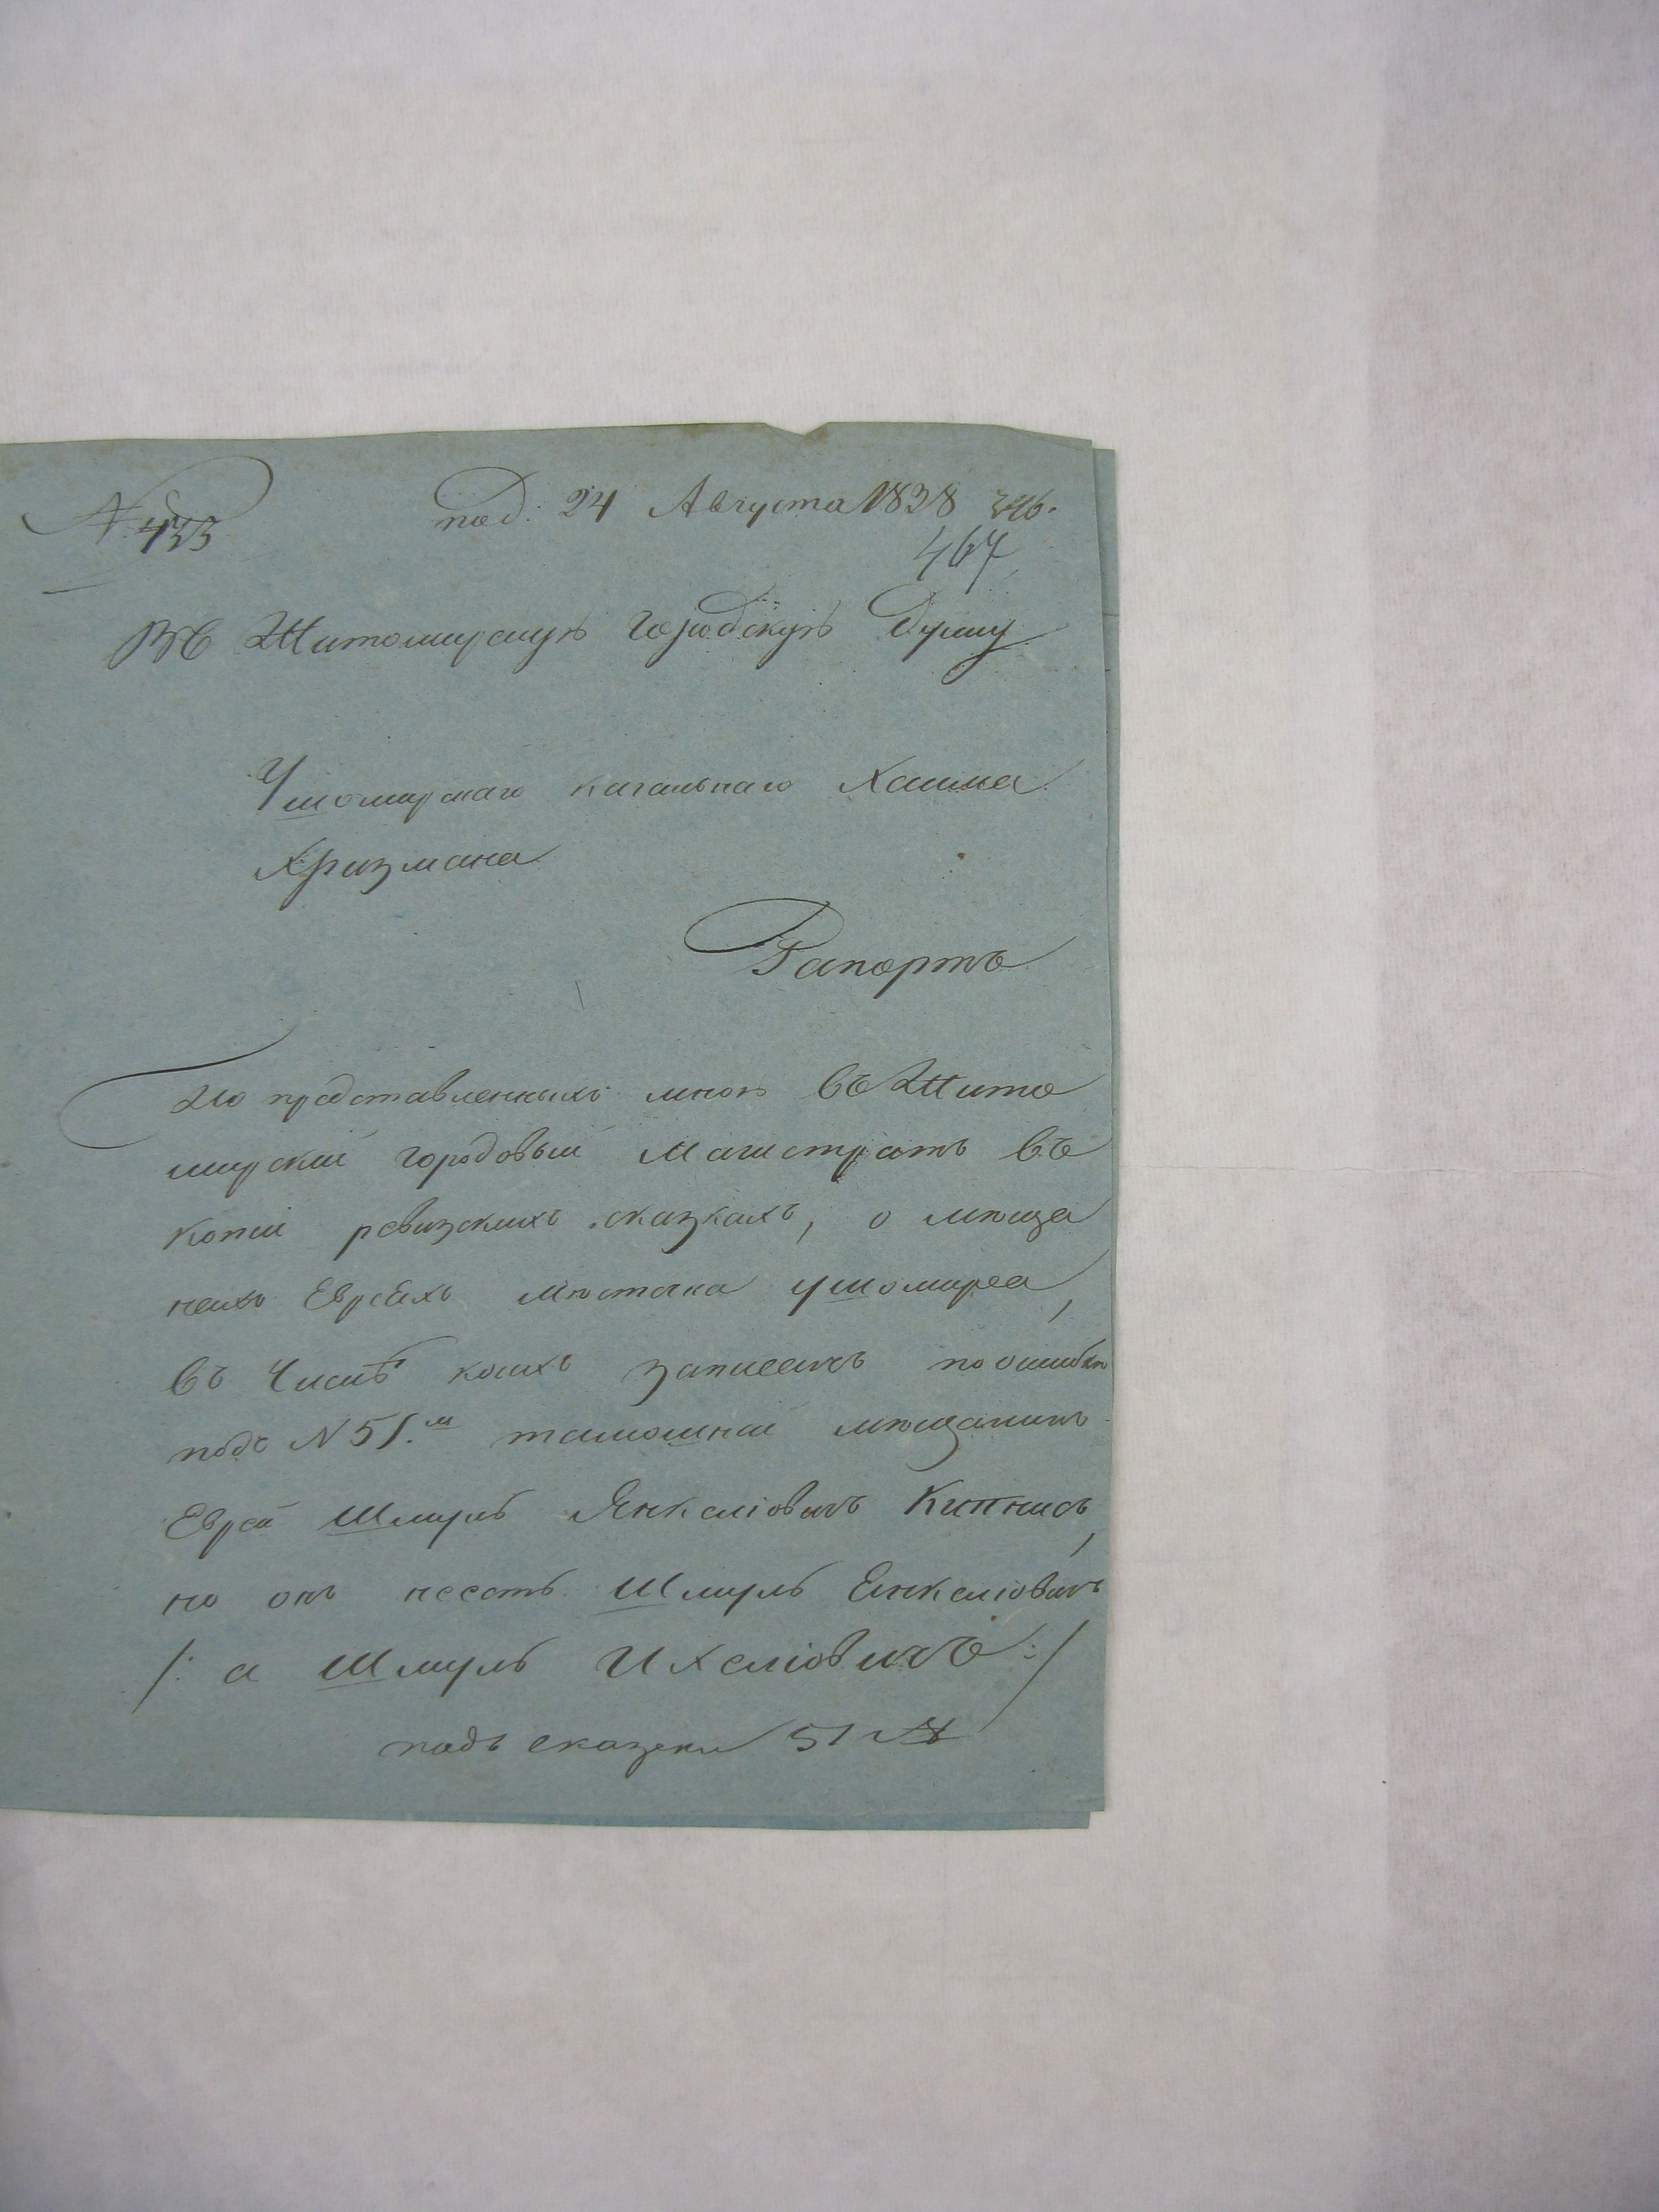 N. 433
под: 24 Августа 1838
467
Въ Житомирскую Городскую Думу
Ушомирскаго кагальнаго Хаима
Хризмана
Рапортъ
По представленныхъ мною въ Жито
мирский городовый Магистратъ въ
копіи ревизскихъ сказкахъ, о мѣща
нахъ Евреѣхъ мѣстечка Ушомира,
въ Числѣ коихъ записанъ по ошибкѣ
подъ N 51.м тамошній мѣщанинъ
Еврей Шмуль Янкеліовичъ Кипнисъ,
но онъ неесть Шмуль Енкеліовичъ
/: а Шмуль Ихеліовичъ :/
подъ сказки 51